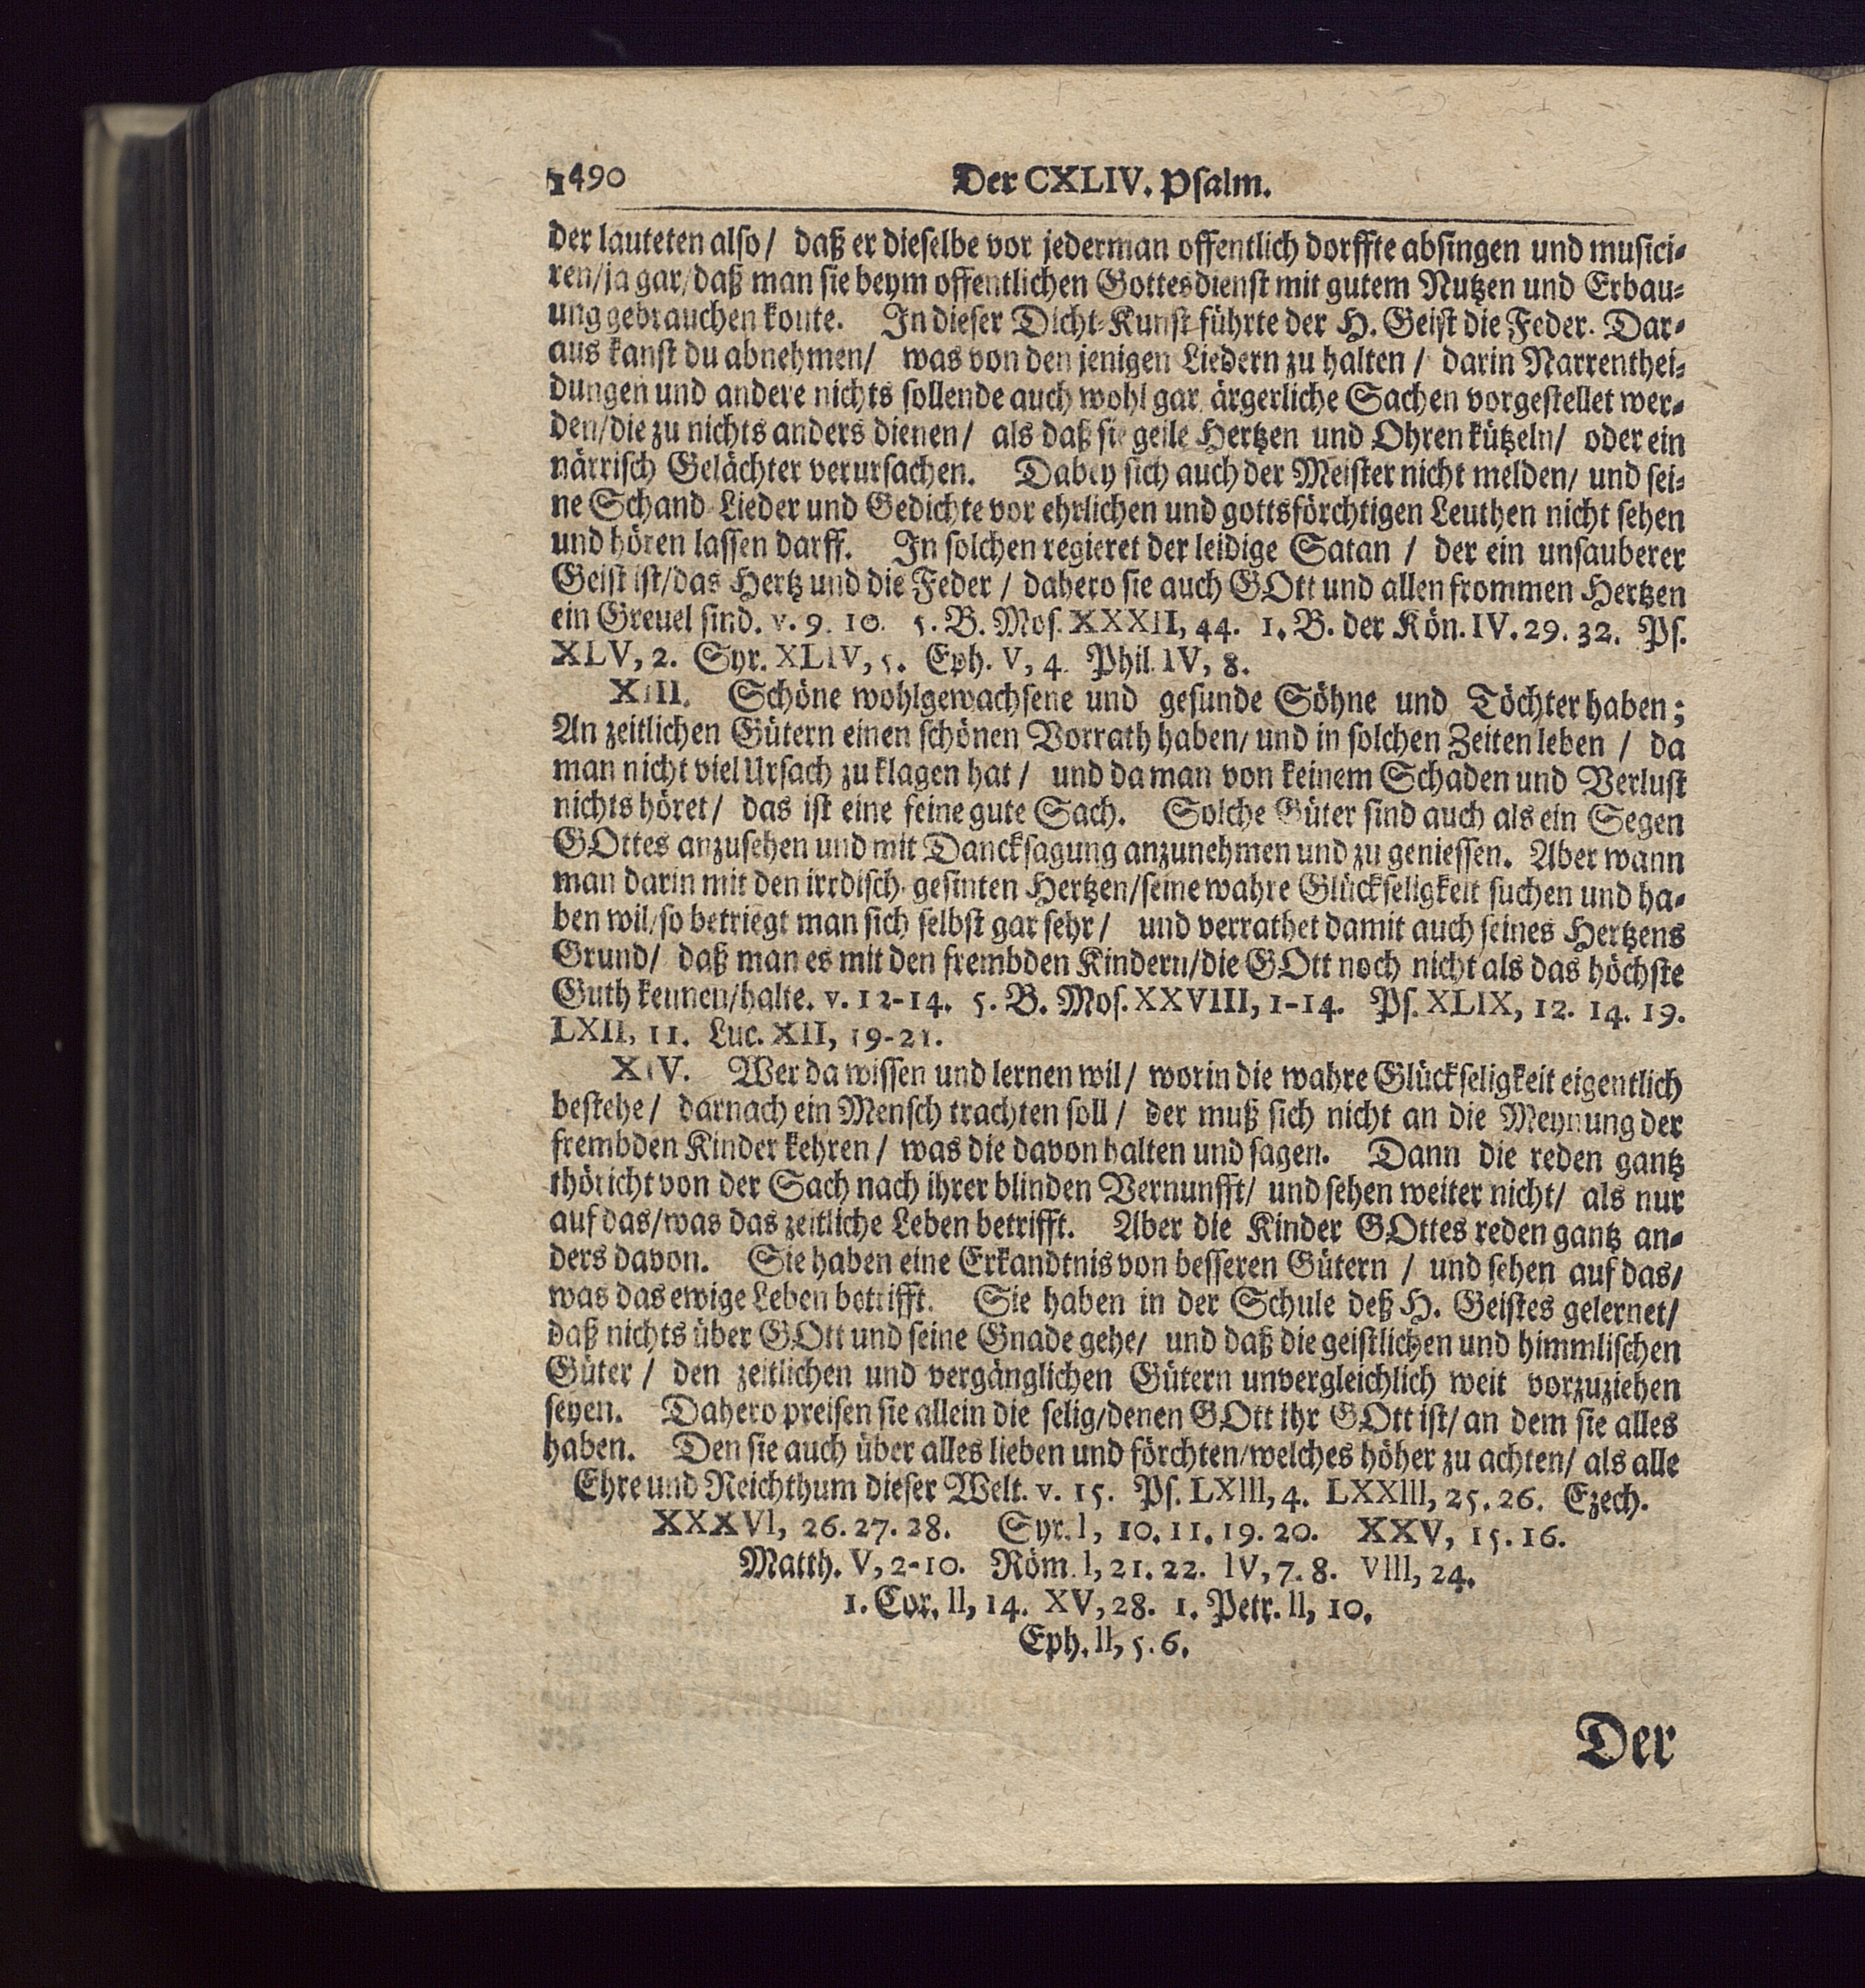 1490 Der CXLIV. Psalm.
der lauteten also / daß er dieselbe vor jederman offentlich dorffte absingen und musici-
ren/ja gar/daß man sie beym offentlichen Gottesdienst mit gutem Nutzen und Erbau-
ung gebrauchen konte. In dieser Dicht-Kunst führte der H. Geist die Feder. Dar-
aus kanst du abnehmen/ was von den jenigen Liedern zu halten / darin Narrenthei-
dungen und andere nichts sollende auch wohl gar ärgerliche Sachen vorgestellet wer-
den/die zu nichts anders dienen/ als daß sie geile Hertzen und Ohren kützeln/ oder ein
närrisch Gelächter verursachen. Dabey sich auch der Meister nicht melden/ und sei-
ne Schand-Lieder und Gedichte vor ehrlichen und gottsförchtigen Leuthen nicht sehen
und hören lassen darff. In solchen regieret der leidige Satan / der ein unsauberer
Geist ist/das Hertz und die Feder / dahero sie auch GOtt und allen frommen Hertzen
ein Greuel sind. v. 9. 10. 5. B. Mos. XXXII, 44. 1. B. der Kön. IV. 29. 32. Ps.
XLV, 2. Syr. XLIV, 5. Eph. V, 4. Phil. IV, 8.
XIII. Schöne wohlgewachsene und gesunde Söhne und Töchter haben;
An zeitlichen Gütern einen schönen Vorrath haben/ und in solchen Zeiten leben / da
man nicht viel Ursach zu klagen hat / und da man von keinem Schaden und Verlust
nichts höret/ das ist eine feine gute Sach. Solche Güter sind auch als ein Segen
GOttes anzusehen und mit Dancksagung anzunehmen und zu geniessen. Aber wann
man darin mit den irrdisch-gesinten Hertzen/seine wahre Glückseligkeit suchen und ha-
ben wil/so betriegt man sich selbst gar sehr / und verrathet damit auch seines Hertzens
Grund/ daß man es mit den frembden Kindern/die GOtt noch nicht als das höchste
Guth kennen/halte. v. 12-14. 5. B. Mos. XXVIII, 1-14. Ps. XLIX, 12. 14. 19.
LXII, 11. Luc. XII, 19-21.
XIV. Wer da wissen und lernen wil / worin die wahre Glückseligkeit eigentlich
bestehe / darnach ein Mensch trachten soll / der muß sich nicht an die Meynung der
frembden Kinder kehren / was die davon halten und sagen. Dann die reden gantz
thöricht von der Sach nach ihrer blinden Vernunfft/ und sehen weiter nicht/ als nur
auf das/was das zeitliche Leben betrifft. Aber die Kinder GOttes reden gantz an-
ders davon. Sie haben eine Erkandtnis von besseren Gütern / und sehen auf das/
was das ewige Leben betrifft. Sie haben in der Schule deß H. Geistes gelernet/
daß nichts über GOtt und seine Gnade gehe/ und daß die geistlichen und himmlischen
Güter / den zeitlichen und vergänglichen Gütern unvergleichlich weit vorzuziehen
seyen. Dahero preisen sie allein die selig/denen GOtt ihr GOtt ist/ an dem sie alles
haben. Den sie auch über alles lieben und förchten/welches höher zu achten/ als alle
Ehre und Reichthum dieser Welt. v. 15. Ps. LXIII, 4. LXXIII, 25. 26. Ezech.
XXXVI, 26. 27. 28. Syr. I, 10. 11. 19. 20. XXV, 15. 16.
Matth. V, 2-10. Röm. I, 21. 22. IV, 7. 8. VIII, 24.
1. Cor. II, 14. XV, 28. 1. Petr. II, 10.
Eph. II, 5. 6.
Der